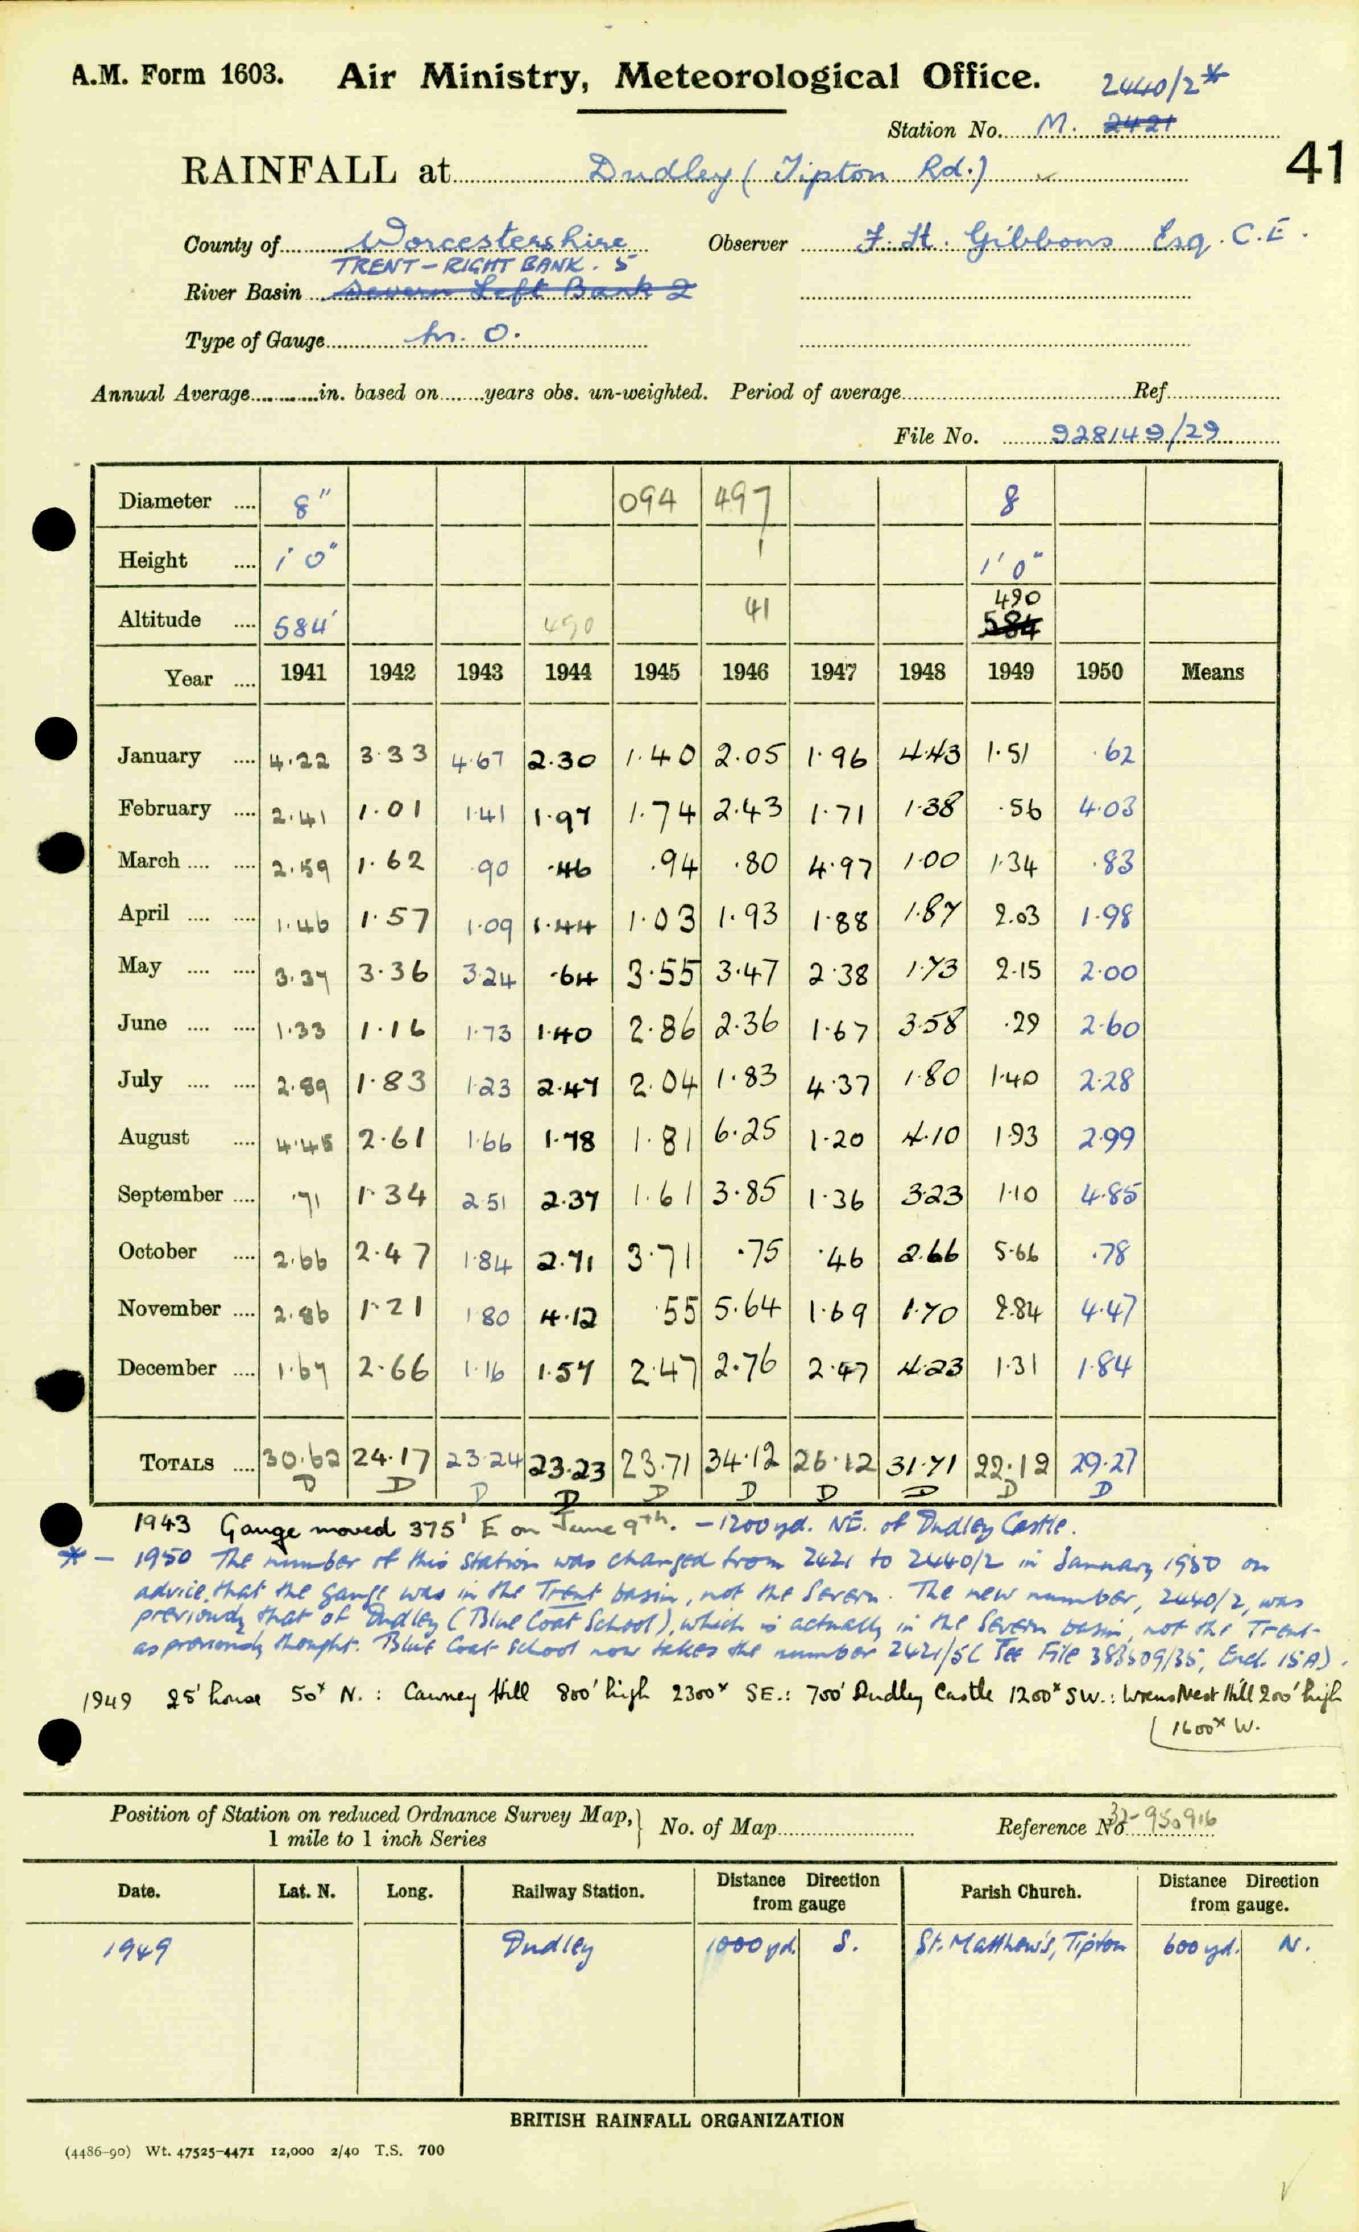 A.M. Form 1603. Air Ministry, Meteorological Office.
2440/2*
Station No. M. 2421
41
RAINFALL at Dudley (Tipton Rd.)
County of Worcestershire Observer F. H. Gibbons Esq. C.E.
TRENT - RIGHT BANK. 5
River Basin Severn Left Bank 2
Type of Gauge M. O.
Annual Average in. based on years obs. un-weighted. Period of average Ref
File No. 928149/29
Diameter 8" 094 497 8
Height 1' 0" 1' 0"
490
Altitude 584' 490 41 584
Year 1941 1942 1943 1944 1945 1946 1947 1948 1949 1950 Means
January 4.22 3.33 4.67 2.30 1.40 2.05 1.96 4.43 1.51 .62
February 2.41 1.01 1.41 1.97 1.74 2.43 1.71 1.38 .56 4.03
March 2.59 1.62 .90 .46 .94 .80 4.97 1.00 1.34 .83
April 1.46 1.57 1.09 1.44 1.03 1.93 1.88 1.87 2.03 1.98
May 3.37 3.36 3.24 .64 3.55 3.47 2.38 1.73 2.15 2.00
June 1.33 1.16 1.73 1.40 2.86 2.36 1.67 3.58 .29 2.60
July 2.89 1.83 1.23 2.47 2.04 1.83 4.37 1.80 1.40 2.28
August 4.45 2.61 1.66 1.78 1.81 6.25 1.20 4.10 1.93 2.99
September .71 1.34 2.51 2.37 1.61 3.85 1.36 3.23 1.10 4.85
October 2.66 2.47 1.84 2.71 3.71 .75 .46 2.66 5.66 .78
November 2.86 1.21 1.80 4.12 .55 5.64 1.69 1.70 2.84 4.47
December 1.67 2.66 1.16 1.57 2.47 2.76 2.47 4.23 1.31 1.84
TOTALS 30.62 24.17 23.24 23.23 23.71 34.12 26.12 31.71 22.12 29.27
D D D D D D D D D D
1943 Gauge moved 375' E on June 9th. - 1200yd. NE. of Dudley Castle.
* - 1950 The number of this station was changed from 2421 to 2440/2 in January 1950 on
advice that the gauge was in the Trent basin, not the Severn. The new number, 2440/2, was
previously that of Dudley (Blue Coat School), which is actually in the Severn basin, not the Trent
as previously thought. Blue Coat School now takes the number 2421/5 (See File 383509/35, Encl. 15A).
1949 25' house 50x N. : Cawney Hill 800' high 2300x SE. : 700' Dudley Castle 1200x SW. : Wrens Nest Hill 200' high
1600x W.
Position of Station on reduced Ordnance Survey Map, 1 mile to 1 inch Series No. of Map Reference No 32-950916
Date. Lat. N. Long. Railway Station. Distance Direction from gauge Parish Church. Distance Direction from gauge.
1949 Dudley 1000 yd. S. St. Matthew's, Tipton 600 yd. N.
BRITISH RAINFALL ORGANIZATION
(4486-90) Wt. 47525-4471 12,000 2/40 T.S. 700